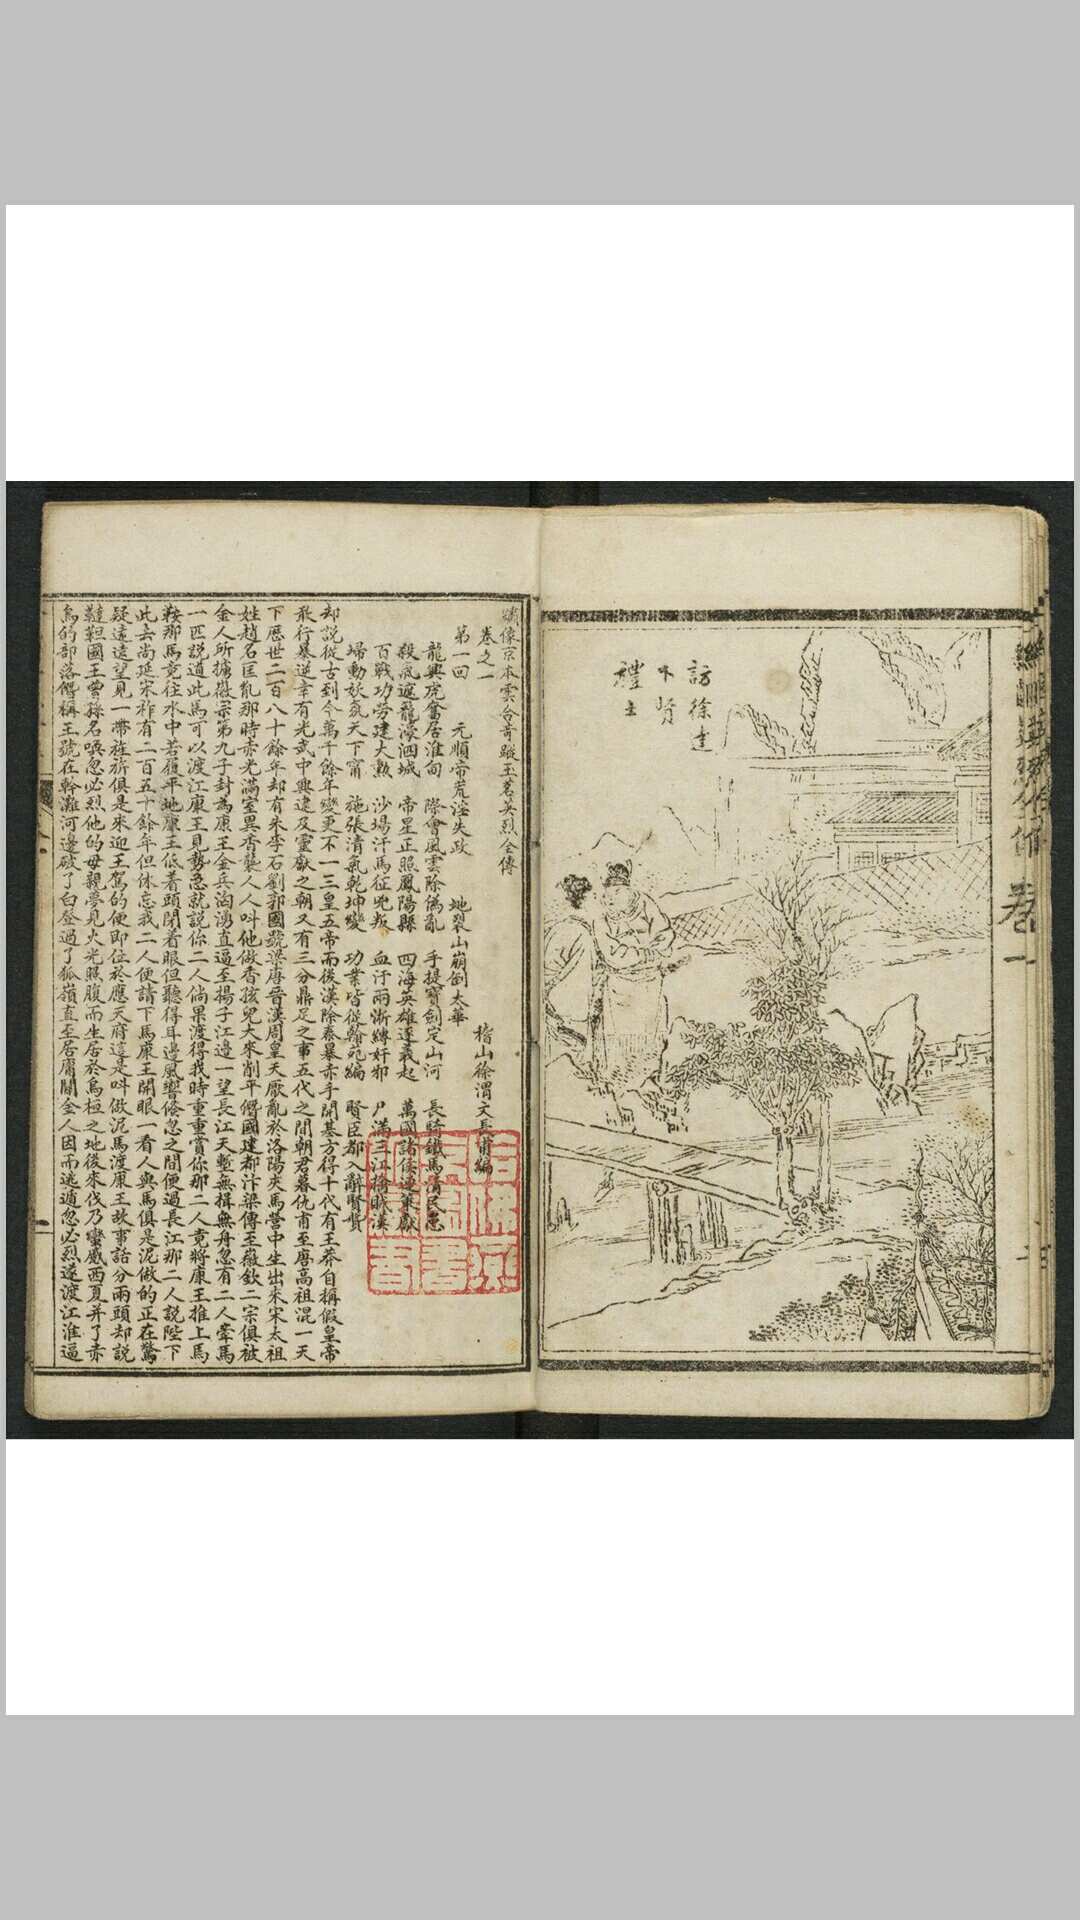 訪徐達
下賢
禮士
繡像京本雲合奇蹤玉茗英烈全傳
卷之一
稽山徐渭文長甫編
第一回 元順帝荒淫失政 地裂山崩創太華
龍興虎奮居淮甸 際會風雲除偽亂 手提寶劍定山河 長騎鐵馬清民患
殺氣遮籠濠泗城 帝星正照鳳陽縣 四海英雄逐義起 萬國諸侯連車獻
百戰功勞建大勲 沙場汗馬征兇叛 血汗兩漸縛奸邪 尸滿三江擒賊漢
掃動妖氛天下甯 施張清氣乾坤變 功業皆從翰苑編 賢臣都入辭賢贊
却說從古到今萬千餘年變更不一三皇五帝而後漢除秦暴赤手開基方得十代有王莽自稱假皇帝
飛行暴逆幸有光武中興遠及靈獻之朝又有三分鼎足之事五代之間朝君暮仇甫至唐高祖混一天
下歷世二百八十餘年却有朱李石劉郭國號梁唐晉漢周皇天厭亂於洛陽夾馬營中生出來宋太祖
姓趙名匡胤那時赤光滿室異香襲人人叫他做香孩兒大來削平僭國建都汴梁傳至徽欽二宗俱被
金人所擄徽宗第九子封為康王金兵洶湧直逼至揚子江邊一望長江天塹無楫無舟忽有二人牽馬
一匹說道此馬可以渡江康王見勢急就說你二人倘果渡得我時重重賞你那二人竟將康王推上馬
鞍那馬竟往水中若履平地康王低着頭閉着眼但聽得耳邊風響倏忽之間便過長江那二人說陛下
此去尚延宋祚有二百五十餘年但休忘我二人便請下馬康王開眼一看人與馬俱是泥做的正在驚
疑遠遠望見一帶旌旂俱是來迎王駕的便即位於應天府這是叫做泥馬渡康王故事話分兩頭却說
韃靼國王曾孫名喚忽必烈他的母親夢見火光照腹而生居於烏桓之地後來伐乃蠻威西夏并了赤
烏的部落僭稱王號在斡灘河邊破了白登過了狐嶺直至居庸關金人因而逃遁忽必烈遂渡江淮逼